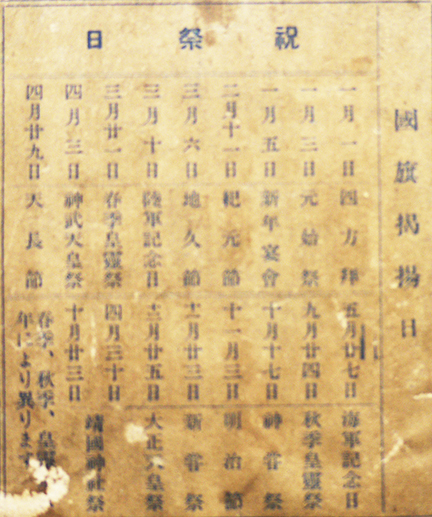 國旗揭揚日
祝祭日
一月一日 四方拜
一月三日 元始祭
一月五日 新年宴會
二月十一日 紀元節
三月六日 地久節
三月十日 陸軍記念日
三月廿一日 春季皇靈祭
四月三日 神武天皇祭
四月廿九日 天長節
五月廿七日 海軍記念日
九月廿四日 秋季皇靈祭
十月十七日 神嘗祭
十一月三日 明治節
十一月廿三日 新嘗祭
十二月廿五日 大正天皇祭
四月三十日
十月廿三日
靖國神社祭
春季、秋季、皇靈
年により異ります